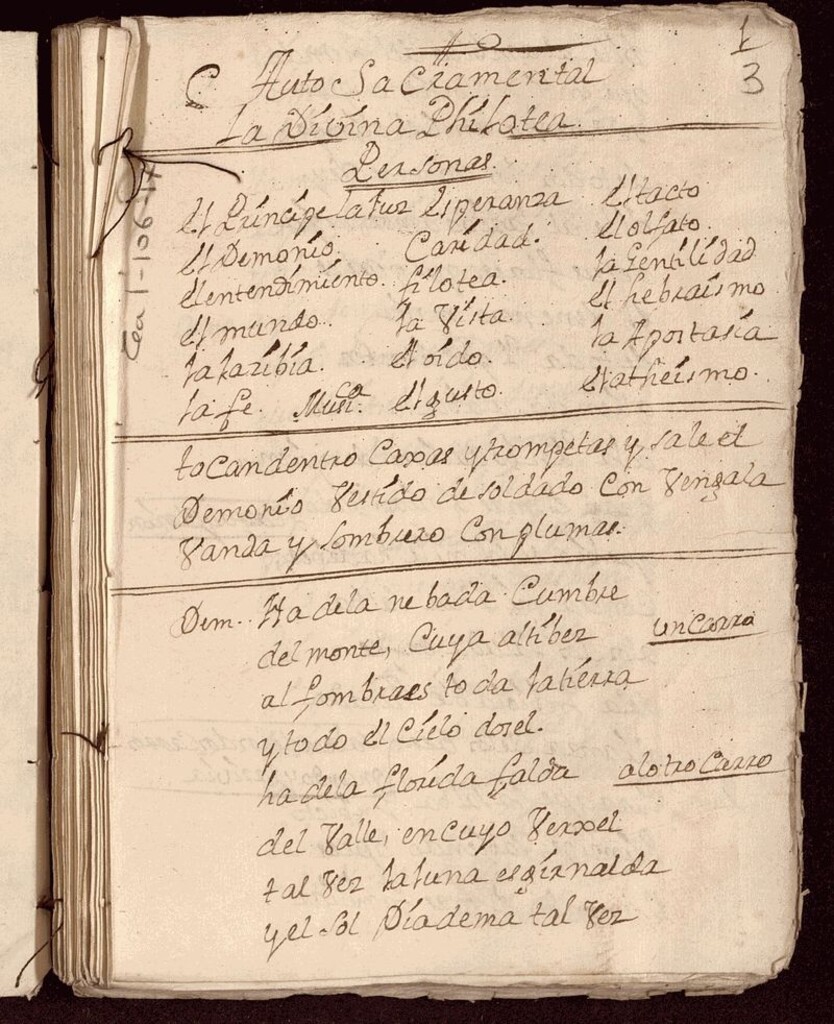 1
3
Auto Sacramental
La Divina Philotea.
Personas.
el Principe la luz Esperanza el tacto
el Demonio. Caridad. el olfato.
el entendimiento. filotea. la Gentilidad
el mundo. la Vista. el hebraismo
la laribia. el oido. la Apostasia
la fe. Musi.ca el gusto. el atheismo.
tocan dentro Caxas y trompetas y sale el
Demonio Vestido de soldado con Vengala
Vanda y sombrero con plumas.
Dem. Ha dela nebada Cumbre
del monte, Cuya altibez un carro
alfombra es toda la tierra
y todo el Cielo dosel.
ha dela florida falda al otro Carro
del Valle, en cuyo Verxel
tal Vez la luna es girnalda
y el sol Diadema tal Vez
Tea 1-106-11